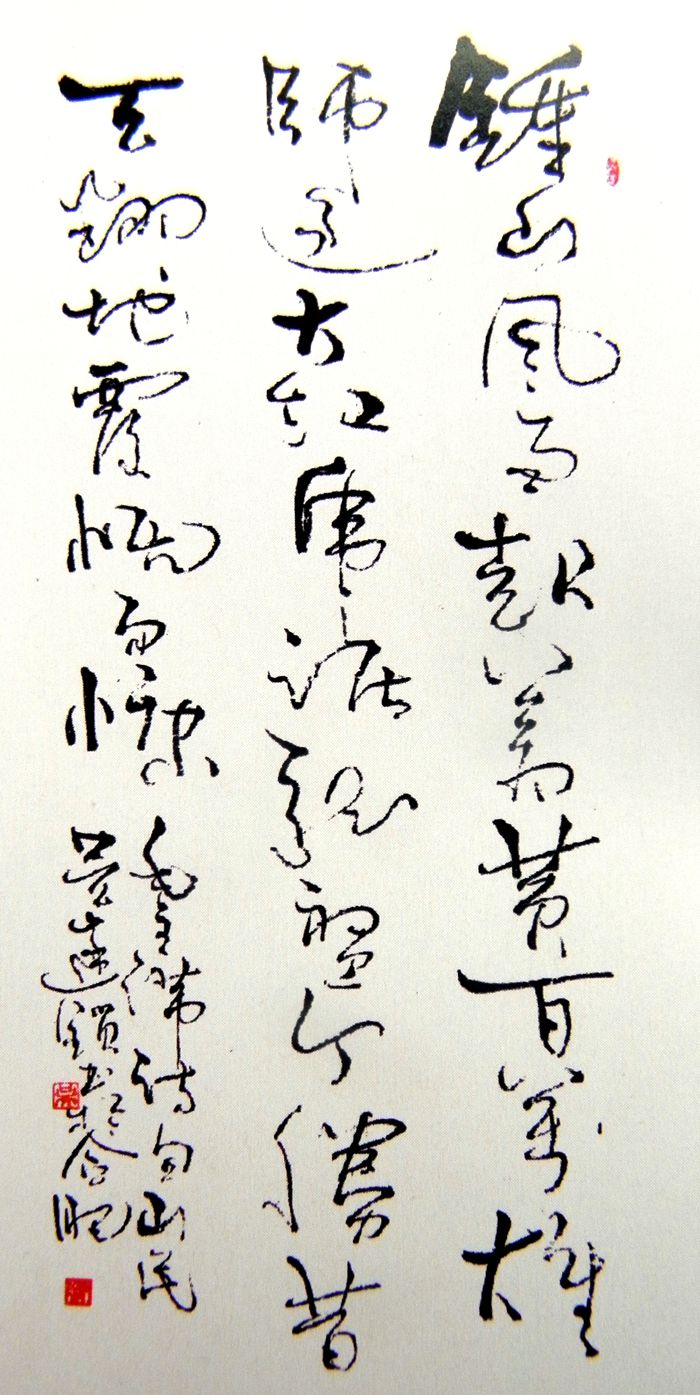 鍾山風雨起蒼黃百萬雄
師過大江虎踞龍盤今勝昔
天翻地覆慨而慷
毛主席詩句山民
吳書於合肥